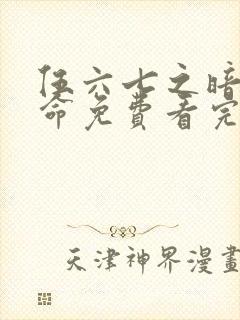 伍六七之暗
命免費看完
天津神界漫畫